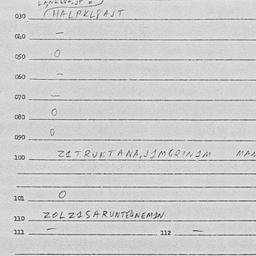 030 (HALPKLGAJT
040 —
050 O
060 —
070 —
080 O
090 O
100 Z1TRUKTANA,J1MGRIN1M MAN
101 O
110 ZOLZ1SARUNTEUNEM1N
111 — 112 —